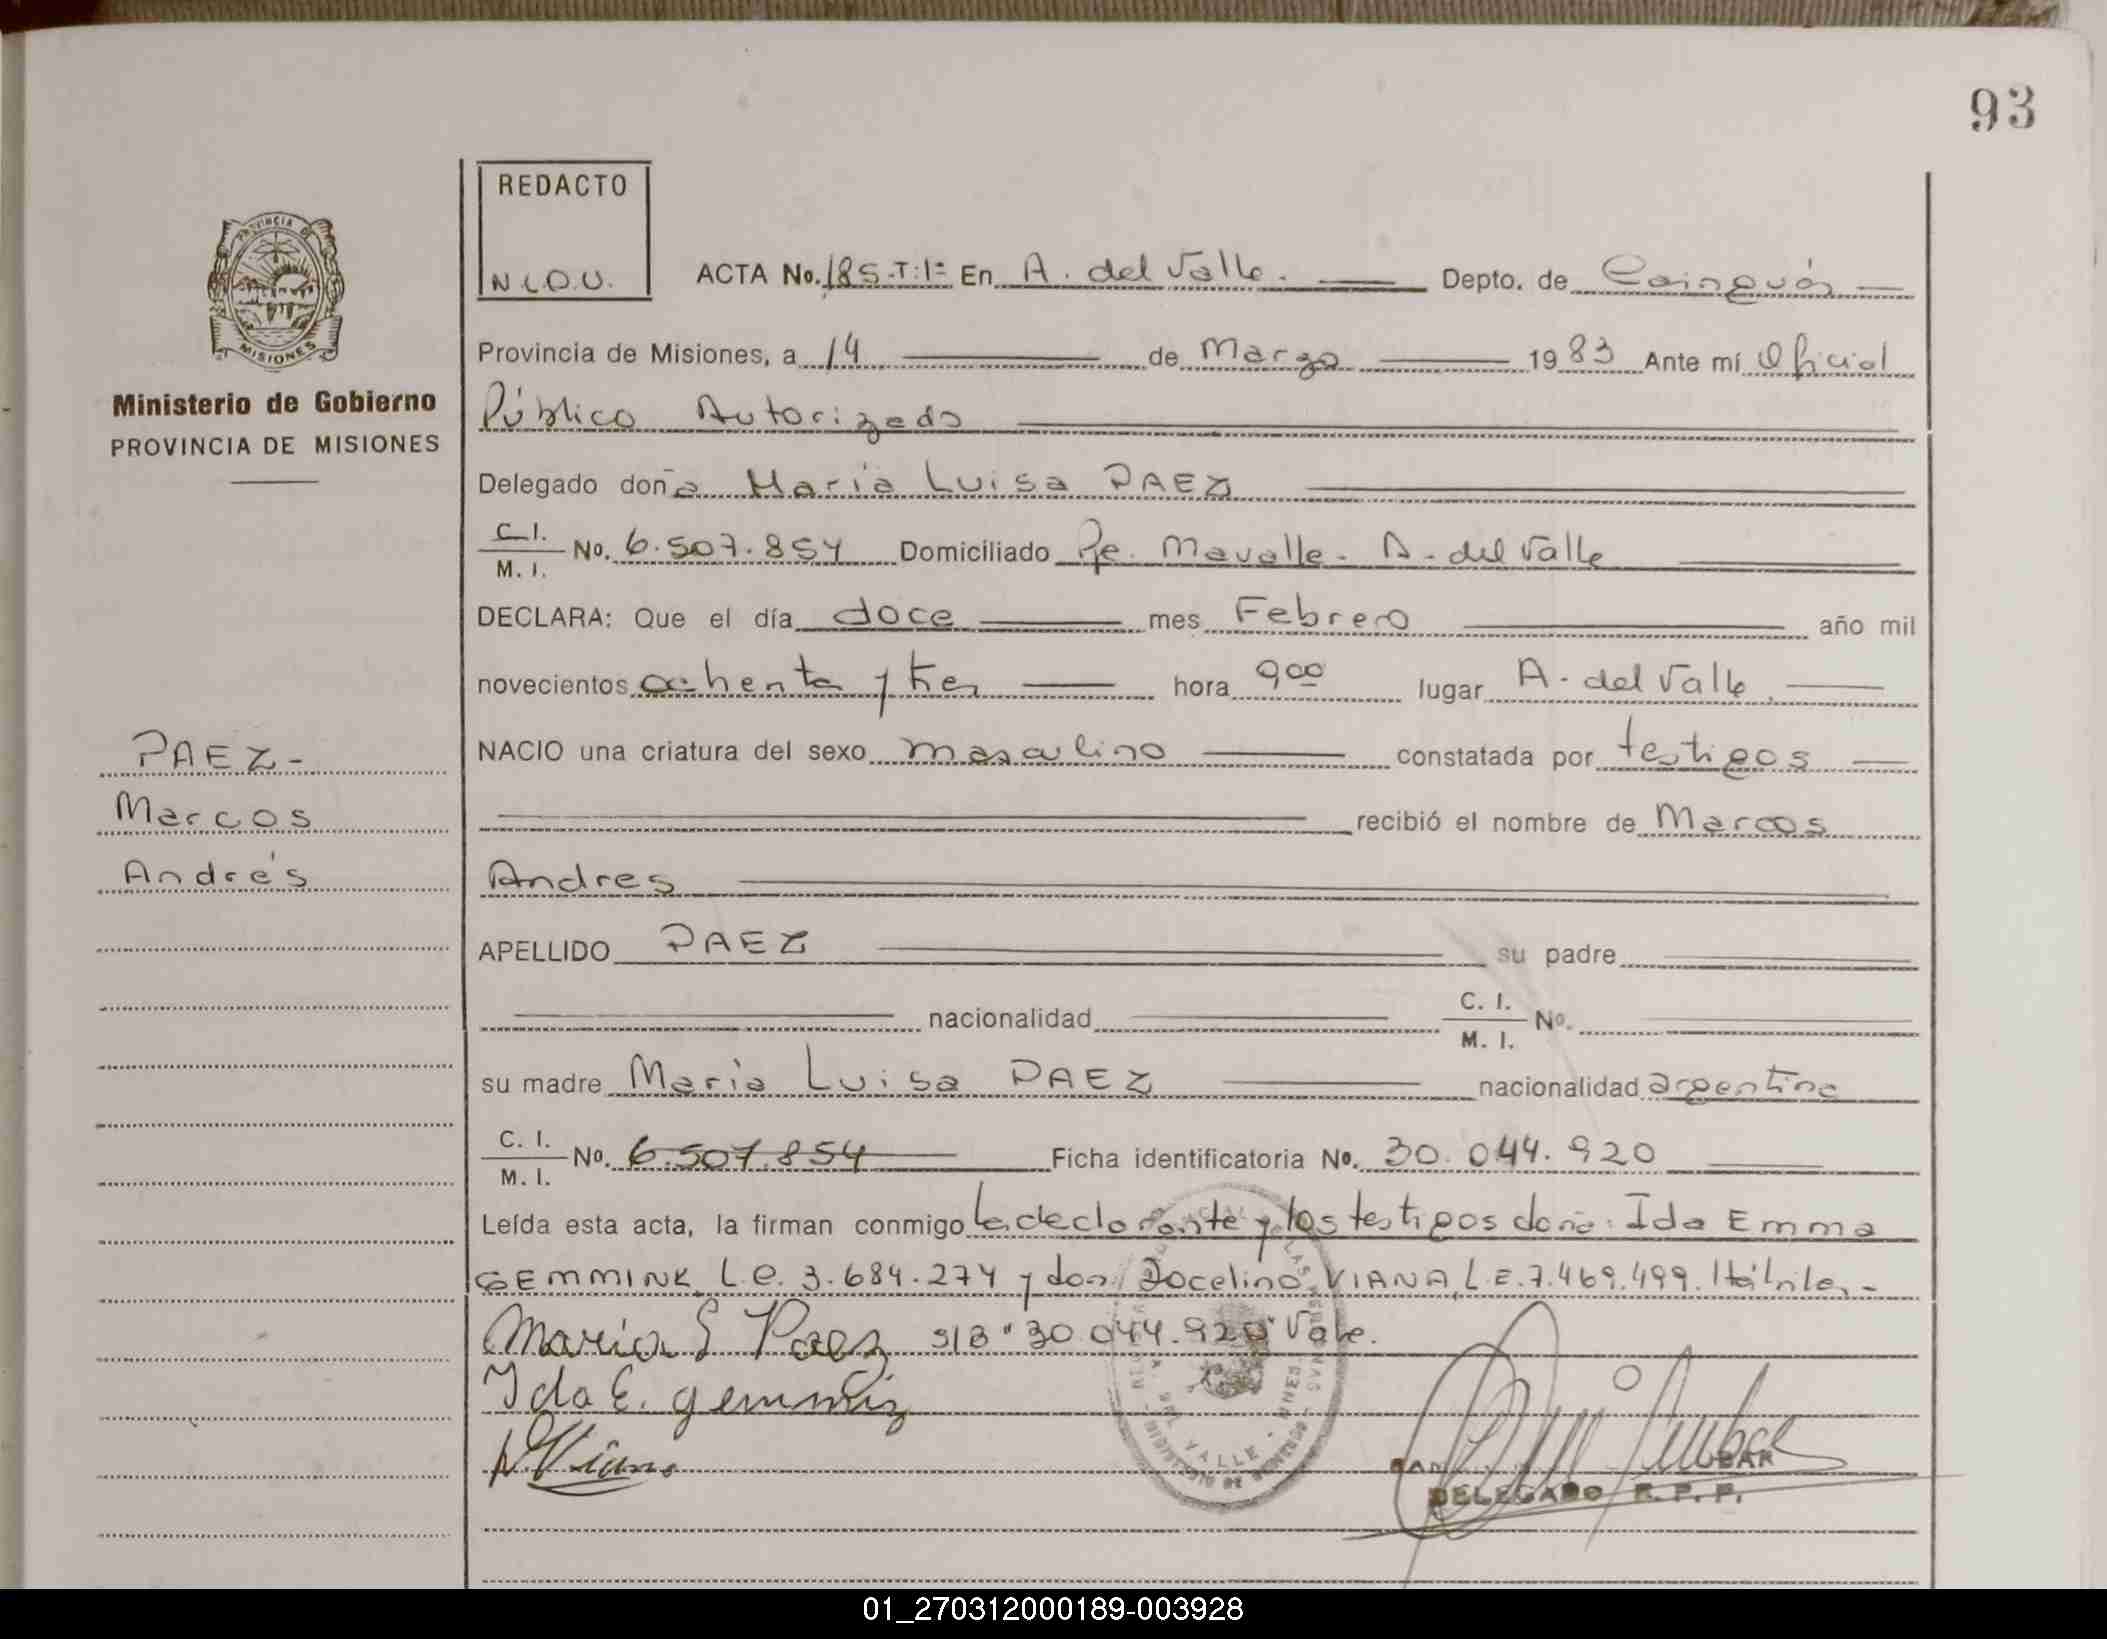 93
REDACTO
N.L.O.U.
PROVINCIA DE
MISIONES
Ministerio de Gobierno
PROVINCIA DE MISIONES
ACTA No. 185-T:1º En A. del Valle. Depto. de Cainguás
Provincia de Misiones, a 14 de Marzo 1983 Ante mí Oficial
Público Autorizado
Delegado doña María Luisa PAEZ
C. I. M. I. No. 6.507.854 Domiciliado Pje. Mavalle - A. del Valle
DECLARA: Que el día doce mes Febrero año mil
novecientos ochenta y tres hora 9 00 lugar A. del Valle.
NACIO una criatura del sexo masculino constatada por testigos
recibió el nombre de Marcos
Andres
APELLIDO PAEZ su padre
nacionalidad C. I. M. I. No.
su madre María Luisa PAEZ nacionalidad argentina
C. I. M. I. No. 6.507.854 Ficha identificatoria No. 30.044.920
Leída esta acta, la firman conmigo la declarante y los testigos doña: Ida Emma
GEMMINK L.C. 3.684.274 y don: Jocelino VIANA L.E. 7.469.499. Hábiles.-
Maria L Paez S/B "30.044.920" Vale.
Ida E.
Viana
DELEGADO R. P. P.
PAEZ-
Marcos
Andrés
01_270312000189-003928